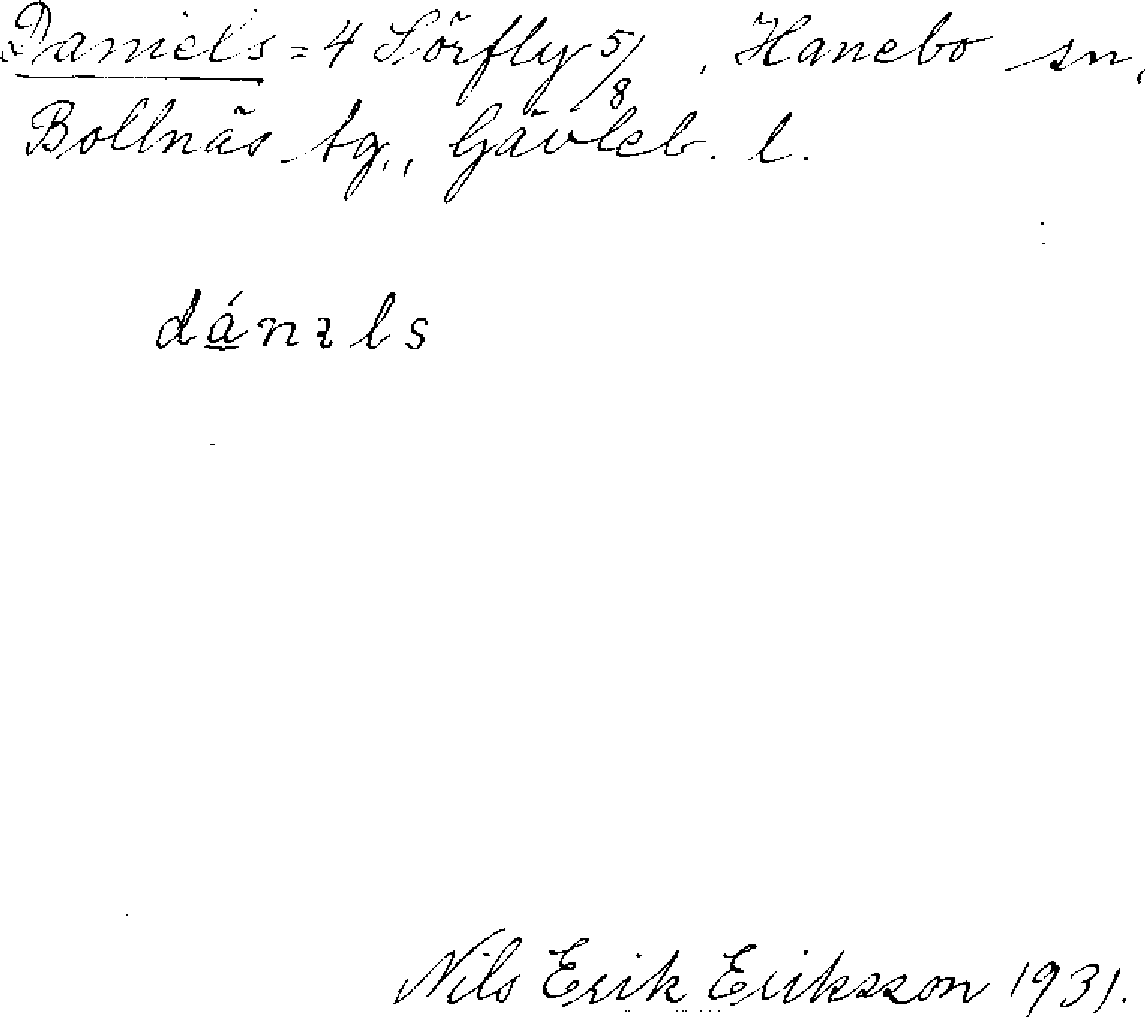 Daniels = 4 Sörfly 5/8, Hanebo sn,
Bollnäs tg., Gävleb. l.
dánɩls
Nils Erik Eriksson 1931.